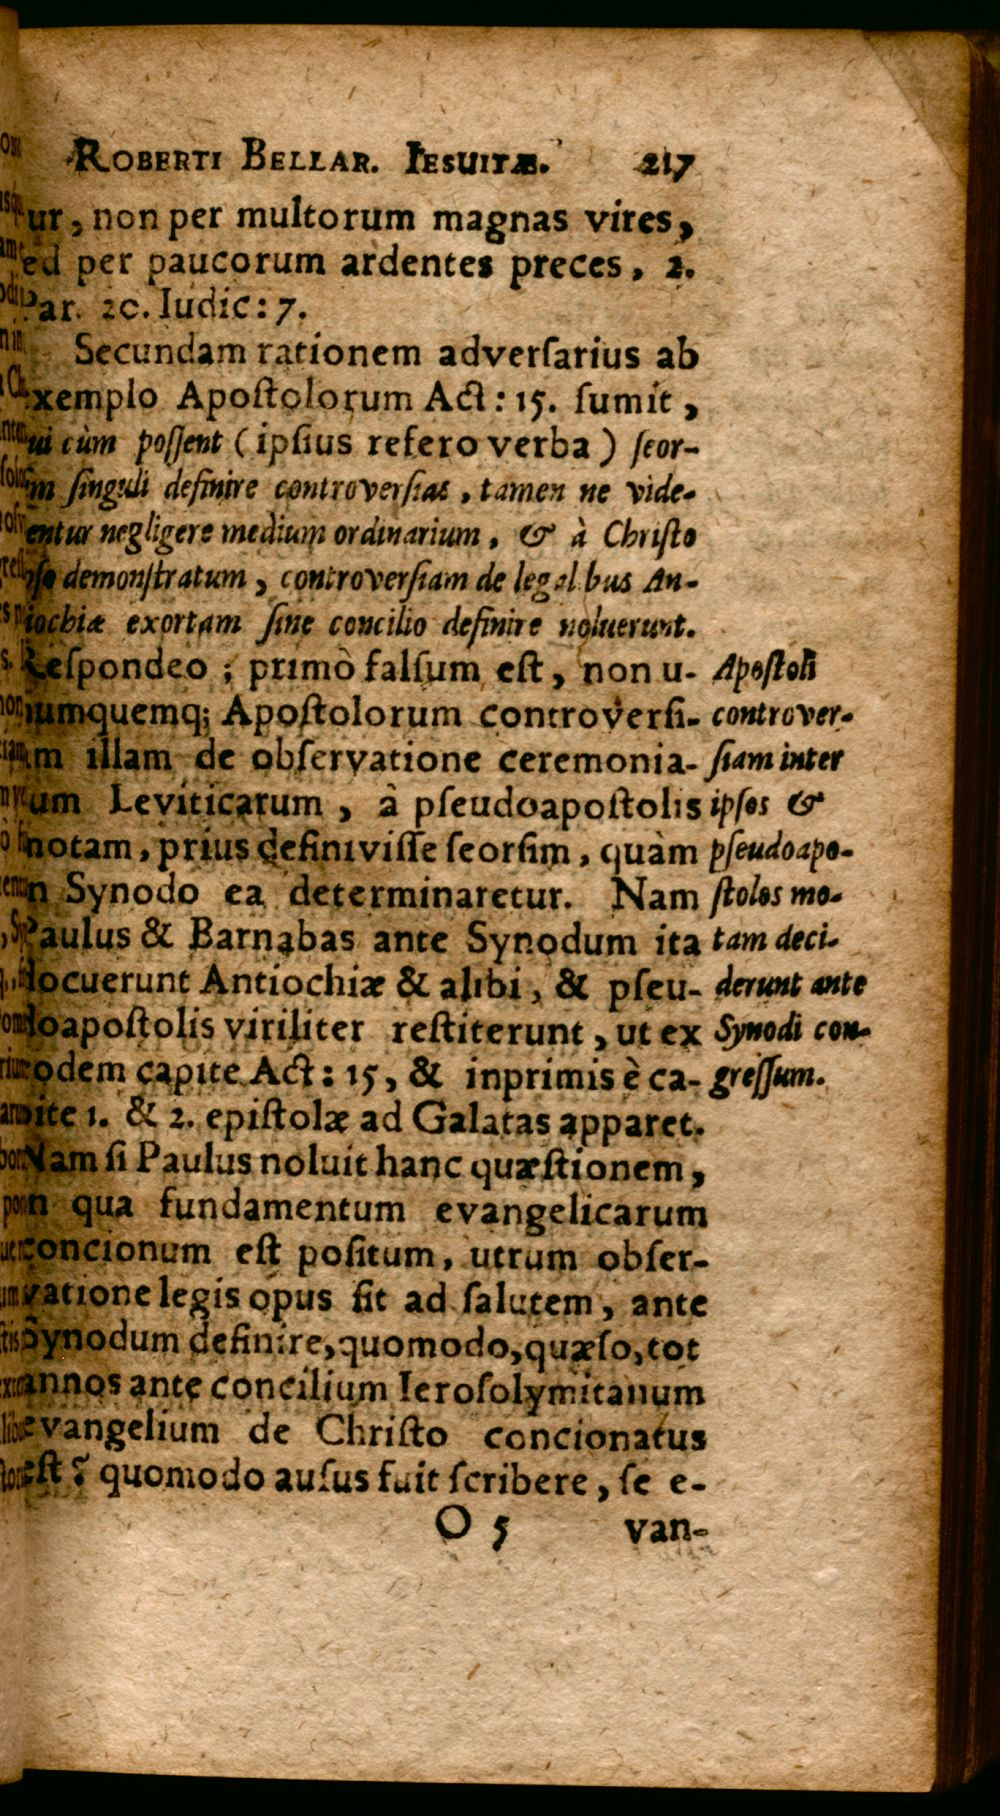 ROBERTI BELLAR. IESUITÆ. 217
ur, non per multorum magnas vires,
ed per paucorum ardentes preces, 2.
Par. 20. Iudic: 7.
Secundam rationem adverſarius ab
xemplo Apoſtolorum Act: 15. ſumit,
ui cùm poſſent (ipſius refero verba) ſeor-
im ſinguli definire controverſias, tamen ne vide-
entur negligere medium ordinarium, & à Chriſto
pſo demonſtratum, controverſiam de legalibus An-
iochiæ exortam ſine concilio definire noluerunt.
Reſpondeo; primò falſum eſt, non u-
numquemq; Apoſtolorum controverſi-
am illam de obſervatione ceremonia-
um Leviticarum, â pſeudoapoſtolis
notam, prius definiviſſe ſeorſim, quàm
n Synodo ea determinaretur. Nam
Paulus & Barnabas ante Synodum ita
docuerunt Antiochiæ & alibi, & pſeu-
doapoſtolis viriliter reſtiterunt, ut ex
eodem capite Act: 15, & inprimis è ca-
pite 1. & 2. epiſtolæ ad Galatas apparet.
Nam ſi Paulus noluit hanc quæſtionem,
n qua fundamentum evangelicarum
concionum eſt poſitum, utrum obſer-
vatione legis opus ſit ad ſalutem, ante
Synodum definire, quomodo, quæſo, tot
annos ante concilium Ieroſolymitanum
evangelium de Chriſto concionatus
eſt? quomodo auſus fuit ſcribere, ſe e-
O 5 van-
Apoſtoli
controver-
ſiam inter
ipſos &
pſeudoapo-
ſtolos mo-
tam deci-
derunt ante
Synodi con-
greſſum.